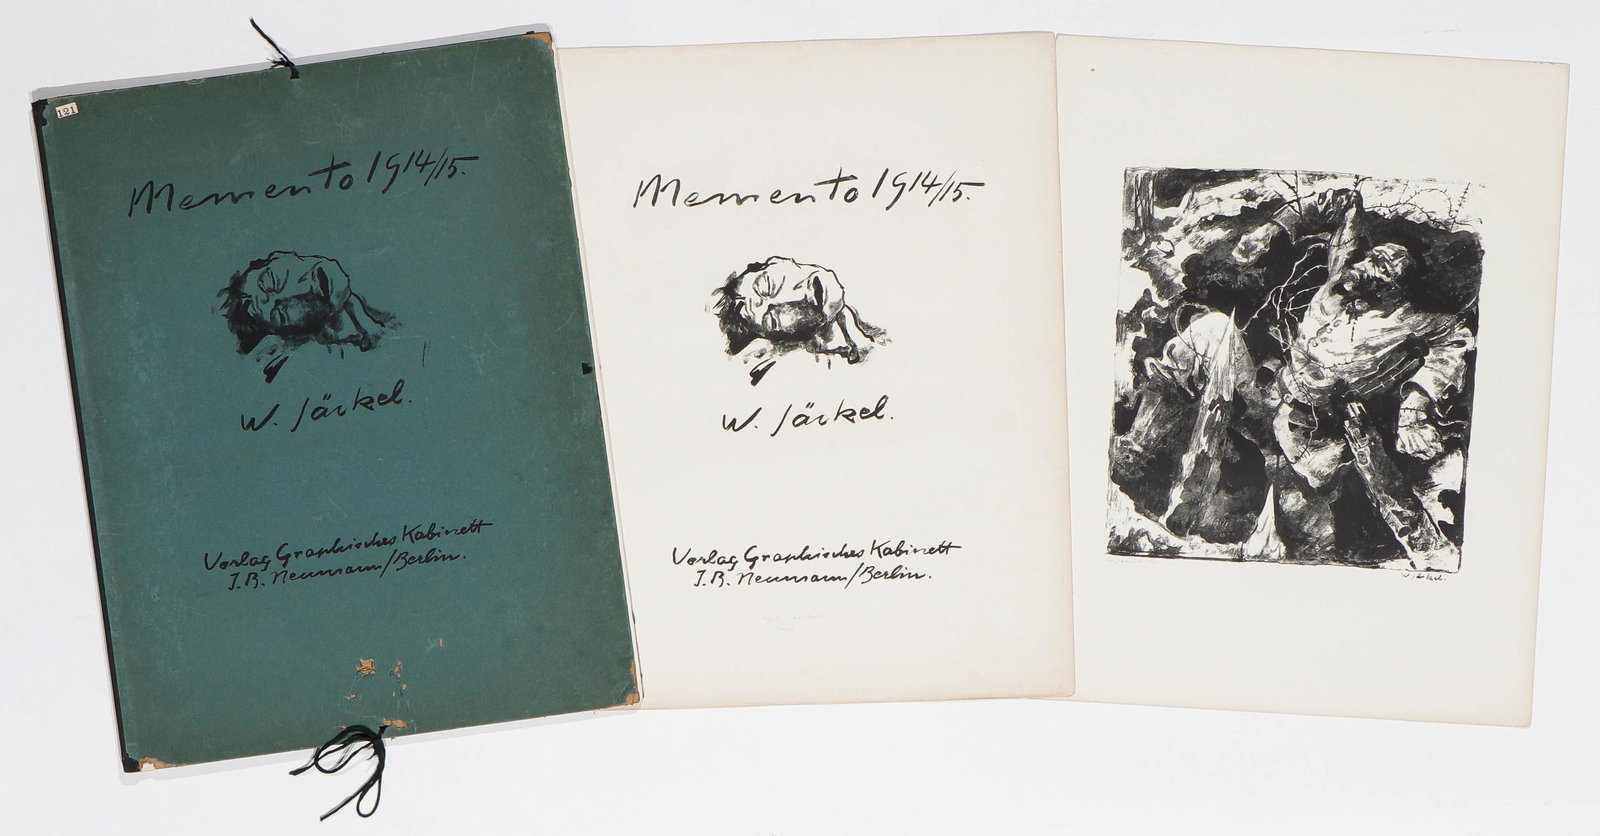 121
Memento 1914/15.
W. Jäckel.
Verlag Graphisches Kabinett
J.B. Neumann/Berlin.
Memento 1914/15.
W. Jäckel.
Verlag Graphisches Kabinett
J.B. Neumann/Berlin.
W. Jäckel.